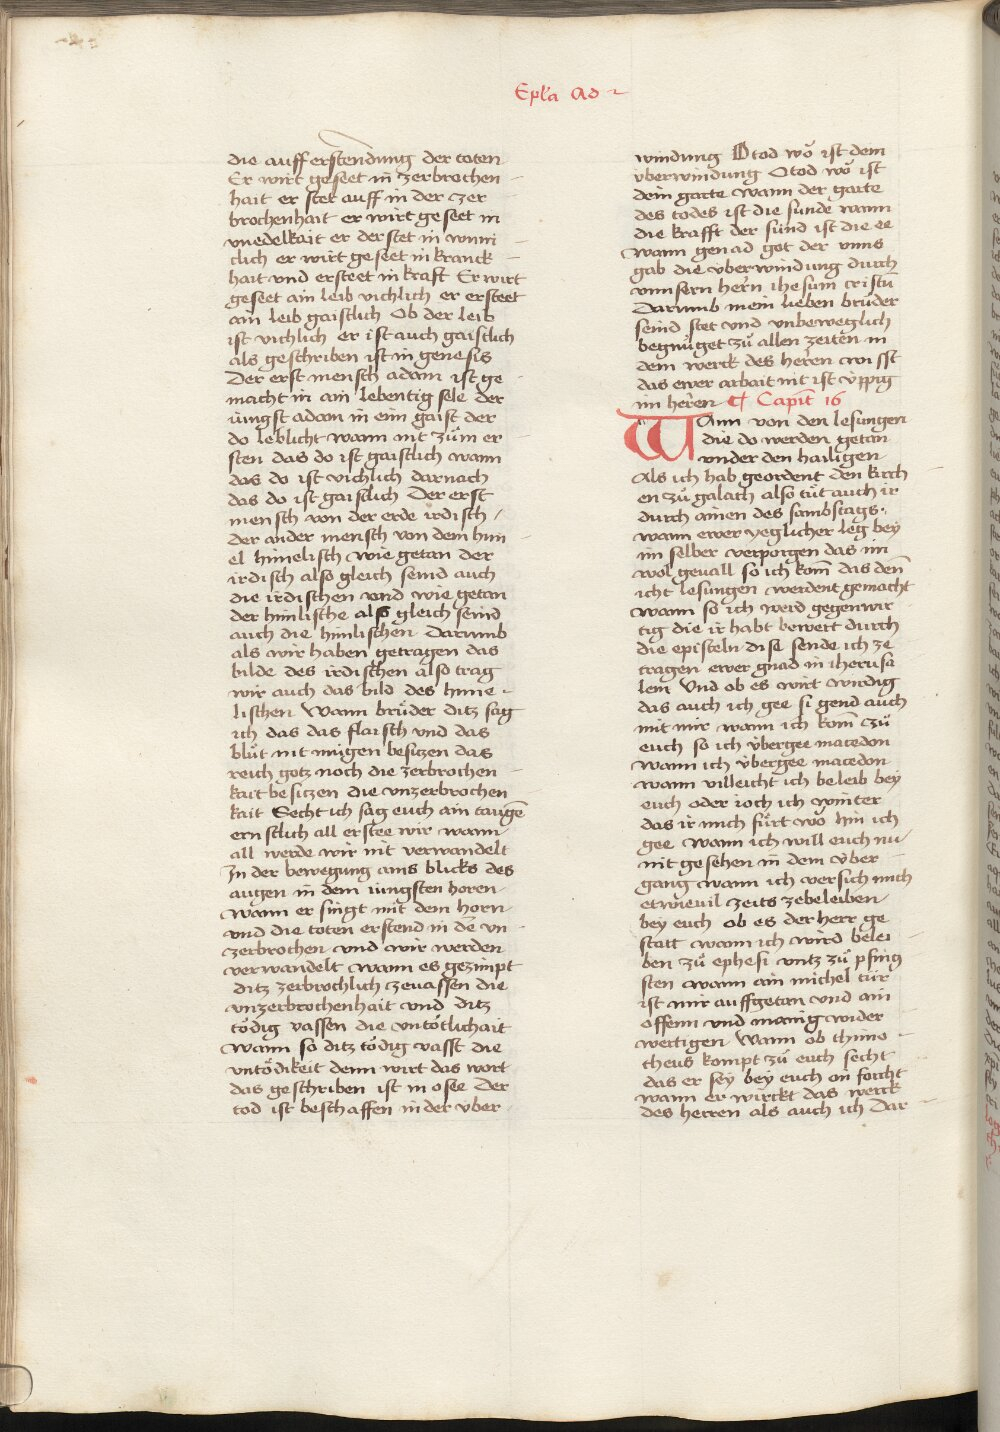 Epl'a Ad
die aufferstendung der toten
Er wirt geseet in zerbrochen
hait er stet auff in der zer
brochenhait er wirt geseet in
vnedelkait er derstet in wuni
clich er wirt geseet in kranck
hait vnd ersteet in kraft Er wirt
geseet ain leib vichlich er ersteet
ain leib gaistlich Ob der leib
ist vichlich er ist auch gaistlich
als geschriben ist in genesis
Der erst mensch adam ist ge
macht in ain lebentig sele der
iungst adam in ein gaist der
do leblicht wann nit zům er
sten das do ist gaistlich wann
das do ist vichlich darnach
das do ist gaistlich Der erst
mensch von der erde irdisch /
der ander mensch von dem him
el himelisch wie getan der
irdisch also gleich seind auch
die irdischen vnd wie getan
der himlische also gleich seind
auch die himlischen Darumb
als wir haben getragen das
bilde des irdischen also trag
wir auch das bild des hime
lischen Wann brůder ditz sag
ich das das flaisch vnd das
blůt nit mügen besitzen das
reich gotz noch die zerbrochen
kait besitzen die vnzerbrochen
kait Secht ich sag euch ain taugē
ernstlich all erstee wir wann
all werde wir nit verwandelt
In der bewegung ains blicks des
augen in dem iungsten horen
wann er singt mit dem horn
vnd die toten erstend in dē vn
zerbrochen vnd wir werden
verwandelt wann es gezimpt
ditz zerbrochlich zevassen die
vnzerbrochenhait vnd ditz
tödig vassen die vntötlichait
wann so ditz tödig vasst die
vntödikeit denn wirt das wort
das geschriben ist in osee Der
tod ist beschaffen in der v̈ber
windung O tod wo ist dem
v̈berwindung O tod wo ist
dein garte wann der garte
des todes ist die sunde wann
die krafft der sünd ist die ee
wann genad got der vnns
gab die v̈berwindung durch
vnnsern hern ihesum cristū
Darumb mein lieben brůder
seind stet vnd vnbeweglich
begnůget zů allen zeiten in
dem werck des heren wisst
das ewer arbait nit ist v̈ppig
im heren ¶ Capit 16
Wann von den lesungen
die do werden getan
vnder den hailigen
Als ich hab geordent den kirch
en zů galath also tůt auch ir
durch ainen des sambstags
wann ewer yeglicher leg bey
im selber verporgen das im
wol geuall so ich kom das deñ
icht lesungen werdent gemacht
wann so ich werd gegenwir
tig die ir habt bewert durch
die episteln dise sende ich ze
tragen ewer gnad in iherusa
lem Vnd ob es wirt wirdig
das auch ich gee si gend auch
mit mir wann ich kom zů
euch so ich v̈bergee macedon
wann ich v̈bergee macedon
wann villeicht ich beleib bey
euch oder ioch ich winter
das ir mich fürt wo hin ich
gee wann ich will euch nu
nit gesehen in dem v̈ber
gang wann ich versich mich
etwieuil zeits zebeleiben
bey euch ob es der herr ge
statt wann ich wird belei
ben zů ephesi vntz zů pfing
sten wann ain michel tür
ist mir auffgetan vnd ain
offenn vnd manig wider
wertigen Wann ob thimo
theus kompt zů euch secht
das er sey bey euch on forcht
wann er wirckt das werck
des herren als auch ich Dar